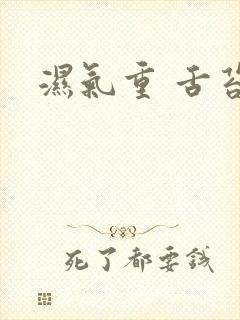 濕氣重 舌苔
死了都要錢